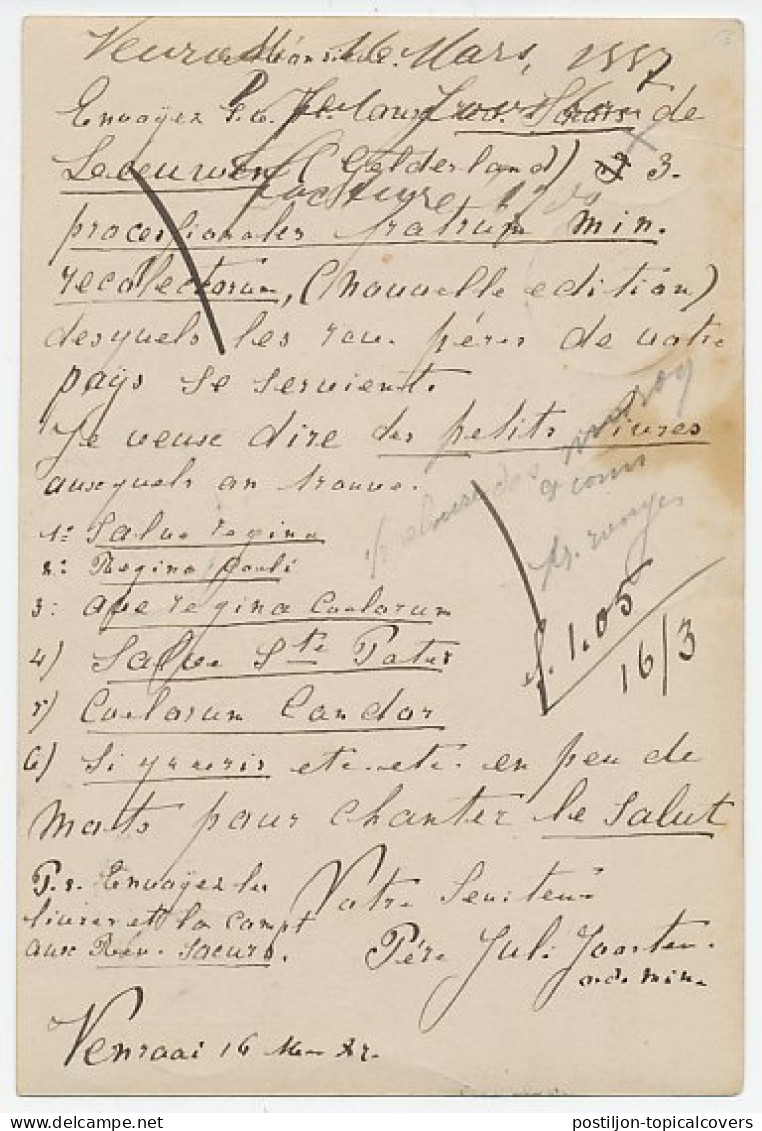 Mars, 1887
Envoyez s.v.p. aux de
Leeuwen (Gelderland) 3.
facture
processionales fratrum min.
recolectorum, (nouvelle edition)
desquels les rev. péres de votre
pays se servient.
Je veux dire des petits livres
auxquels on trouve.
1º Salve regina
2º Regina Coeli
3: ave regina Coelorum
4) Salve Ste Pater
5) Coelorum Candor
6) Si quaeris etc. etc. en peu de
mots pour chanter le Salut
f. 1.05
16/3
P.s. Envoyez les
livres et la compt
aux Rev. Soeurs.
Votre Serviteur
Pére Juli Joosten
ord. min.
Venraai 16
postiljon-topicalcovers